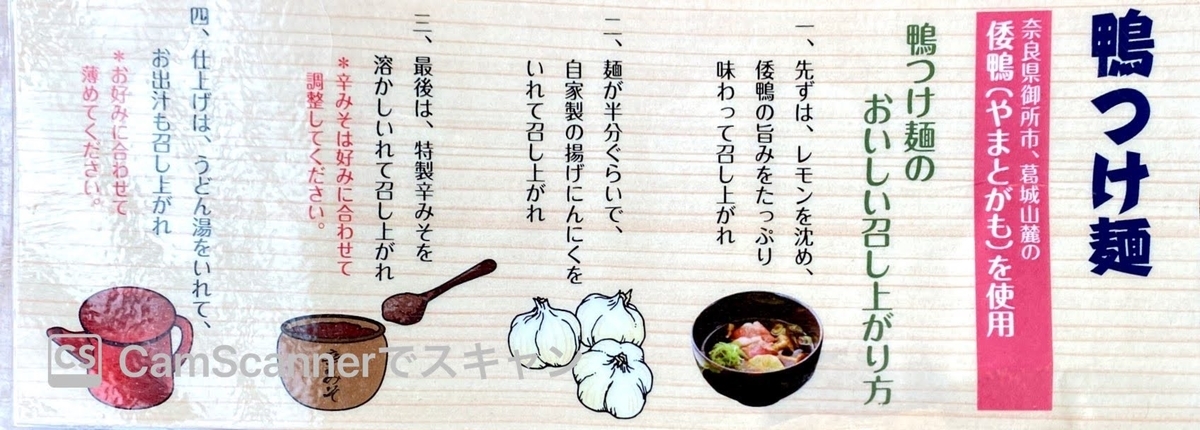 鴨つけ麺
奈良県御所市、葛城山麓の
倭鴨(やまとがも)を使用
鴨つけ麺の
おいしい召し上がり方
一、先ずは、レモンを沈め、
倭鴨の旨みをたっぷり
味わって召し上がれ
二、麺が半分ぐらいで、
自家製の揚げにんにくを
いれて召し上がれ
三、最後は、特製辛みそを
溶かしいれて召し上がれ
*辛みそは好みに合わせて
調整してください。
四、仕上げは、うどん湯をいれて、
お出汁も召し上がれ
*お好みに合わせて
薄めてください。
みそ
CS CamScannerでスキャン